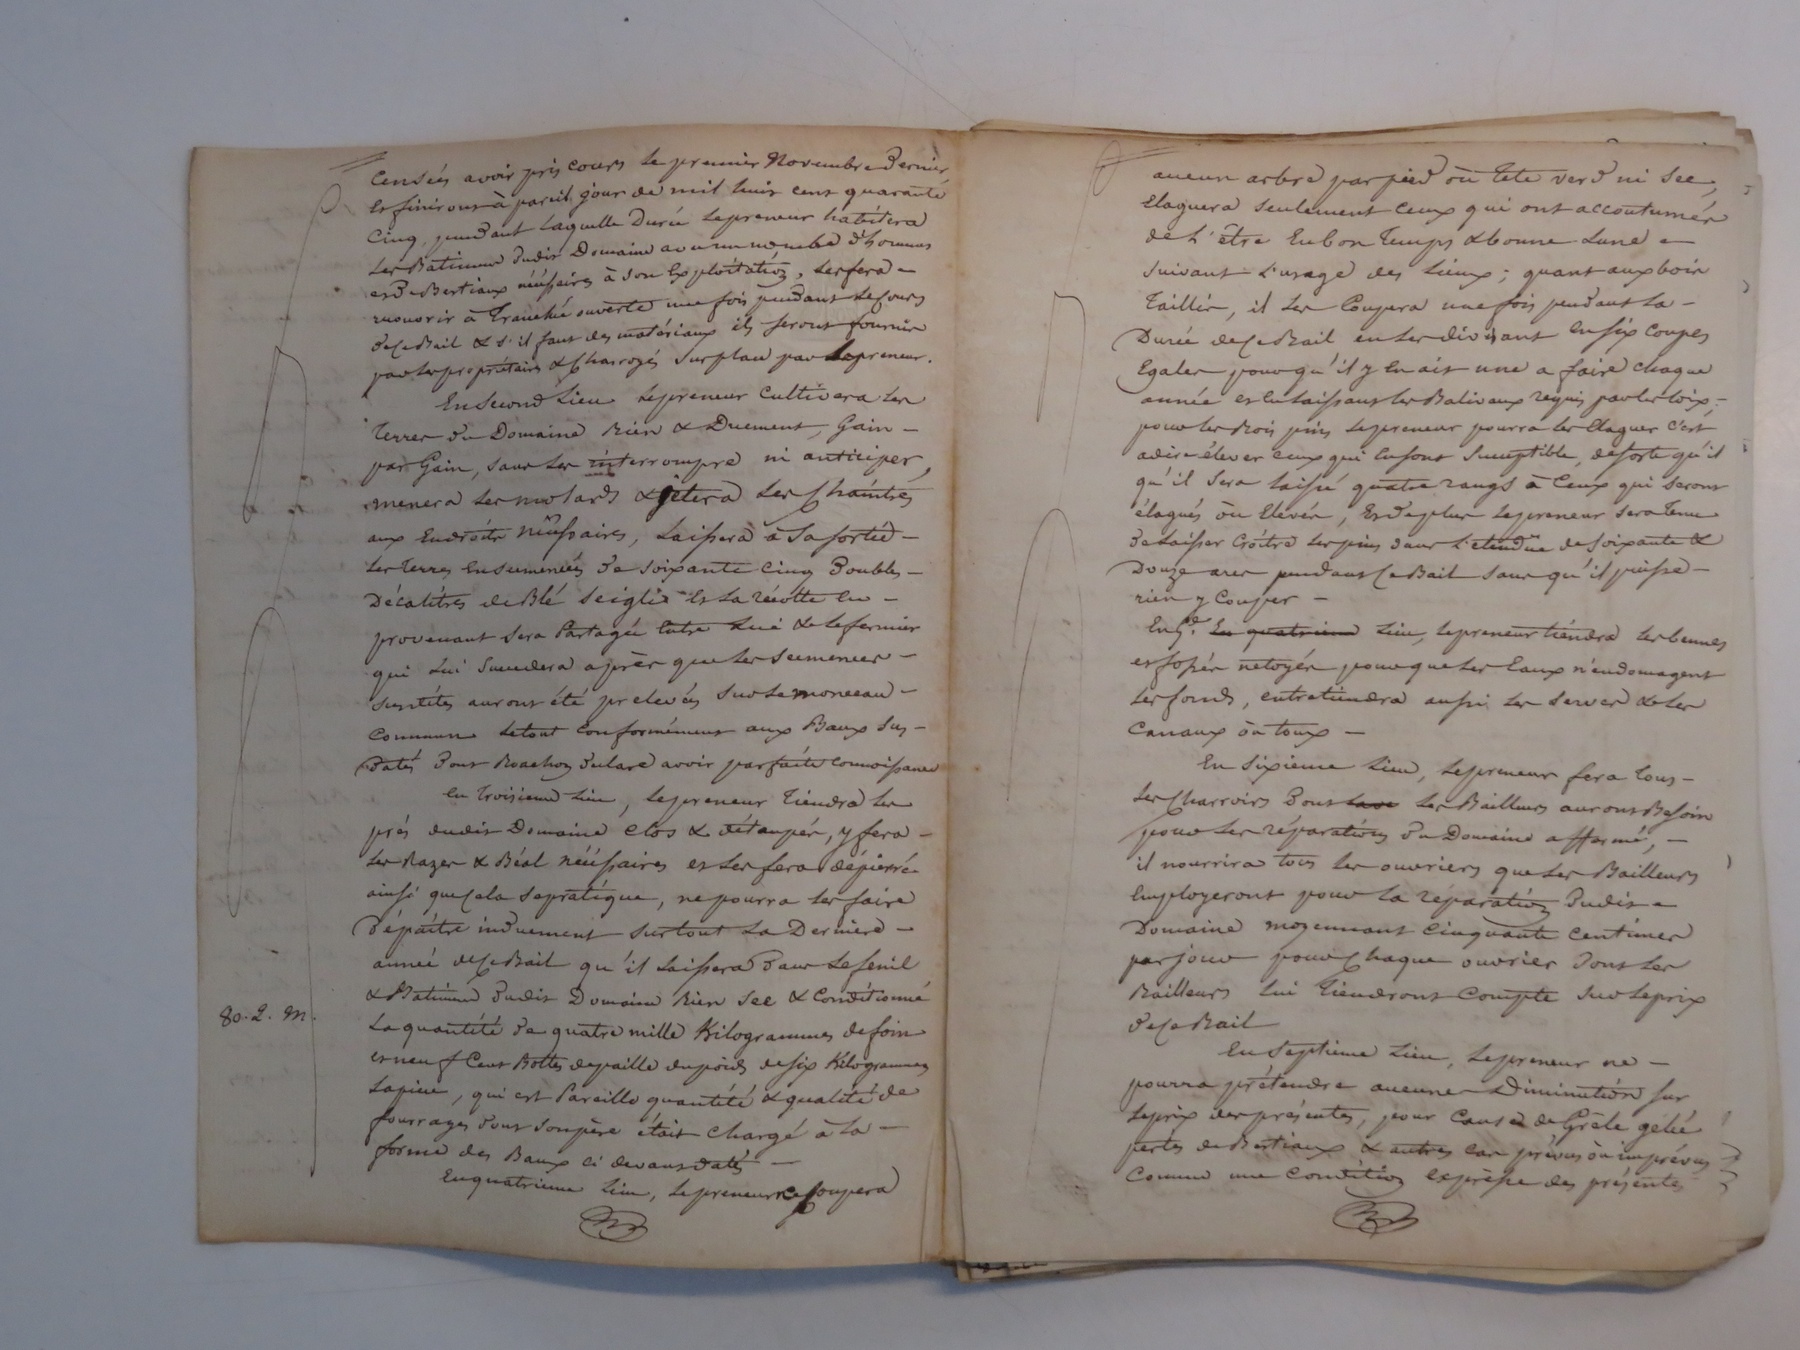 censées avoir pris cours le premier Novembre Dernier
et finiront à pareil jour de mil huit cent quarante
cinq, pendant laquelle Durée le preneur habitera
les Batimens dudit Domaine avec un nombre d'hommes
et de Bestiaux nécessaires à son Exploitation, les fera
recouvrir à Tranchée ouverte une fois pendant le cours
de ce Bail & s'il faut des matériaux ils seront fournis
par les propriétaires & Charroyés sur place par le preneur.
En second Lieu le preneur Cultivera les
Terres du Domaine Bien & Duement, Gain
par Gain, sans les interrompre ni anticiper,
menera les motards & jetera les Chaintres
aux Endroits nécessaires, Laissera à sa sortie
les Terres Ensemencées de soixante cinq Doubles
Décalitres de Blé seigle et la récolte en
provenant sera Partagée Entre Lui & le fermier
qui lui succedera après que les semences
susdites auront été prelevées sur le monceau
commun le tout conformément aux Baux sus
datés Dont Roachon Déclare avoir parfaite connoissance
En troisieme Lieu, le preneur Tiendra les
prés dudit Domaine clos & détaupés, y fera
les Razes & Béal nécessaires et les fera dépierré
ainsi que cela se pratique, ne pourra les faire
Dépaitre induement surtout La Derniere
année de ce Bail qu'il laissera dans le fenil
& Batimens dudit Domaine Bien sec & Conditionné
80. 2. m.
La quantité de quatre mille Kilogrammes de foin
et neuf Cent Bottes de paille du poids de six Kilogrammes
la piece, qui est Pareille quantité & qualité de
fourrages dont son père était chargé à la
forme des Baux ci devant datés
En quatrieme Lieu, le preneur ne Coupera
aucun arbre par pied où tête verd ni sec,
Elaguera seulement Ceux qui ont accoutumés
de l'être En bon Temps & bonne Lune
suivant l'usage des Lieux; quant aux bois
Taillis, il les Coupera une fois pendant la
Durée de ce Bail en les divisant en six coupes
Egales pour qu'il y En ait une a faire chaque
année et en laissant les Baliveaux requis par les loix;
pour les Bois pins le preneur pourra les Elaguer c'est
adire élever ceux qui en sont susceptible, de sorte qu'il
qu'il sera laissé quatre rangs à Ceux qui seront
élagués où Elevés, Et de plus le preneur sera Tenu
de laisser Croître les pins dans l'étendue de soixante &
Douze ares pendant ce Bail sans qu'il puisse
rien y Couper
En 5e. En quatrieme Lieu, le preneur tiendra les bennes
et fossés netoyés pour que les Eaux n'endomagent
les fonds, entretiendra aussi les serves & les
Canaux où toux
En sixieme Lieu, le preneur fera tous
les Charrois Dont les Bailleurs auront Besoin
pour les réparations du Domaine affermé,
il nourrira tous les ouvriers que les Bailleurs
Employeront pour la réparation dudit
Domaine moyennant cinquante centimes
par jour pour Chaque ouvrier Dont les
Bailleurs lui Tiendront Compte sur le prix
de ce Bail
En septieme Lieu, le preneur ne
pourra prétendre aucune Diminution sur
le prix des présentes, pour cause de Grêle gelée
pertes de Bestiaux & autres cas prévus où imprévus
Comme une condition expresse des présentes